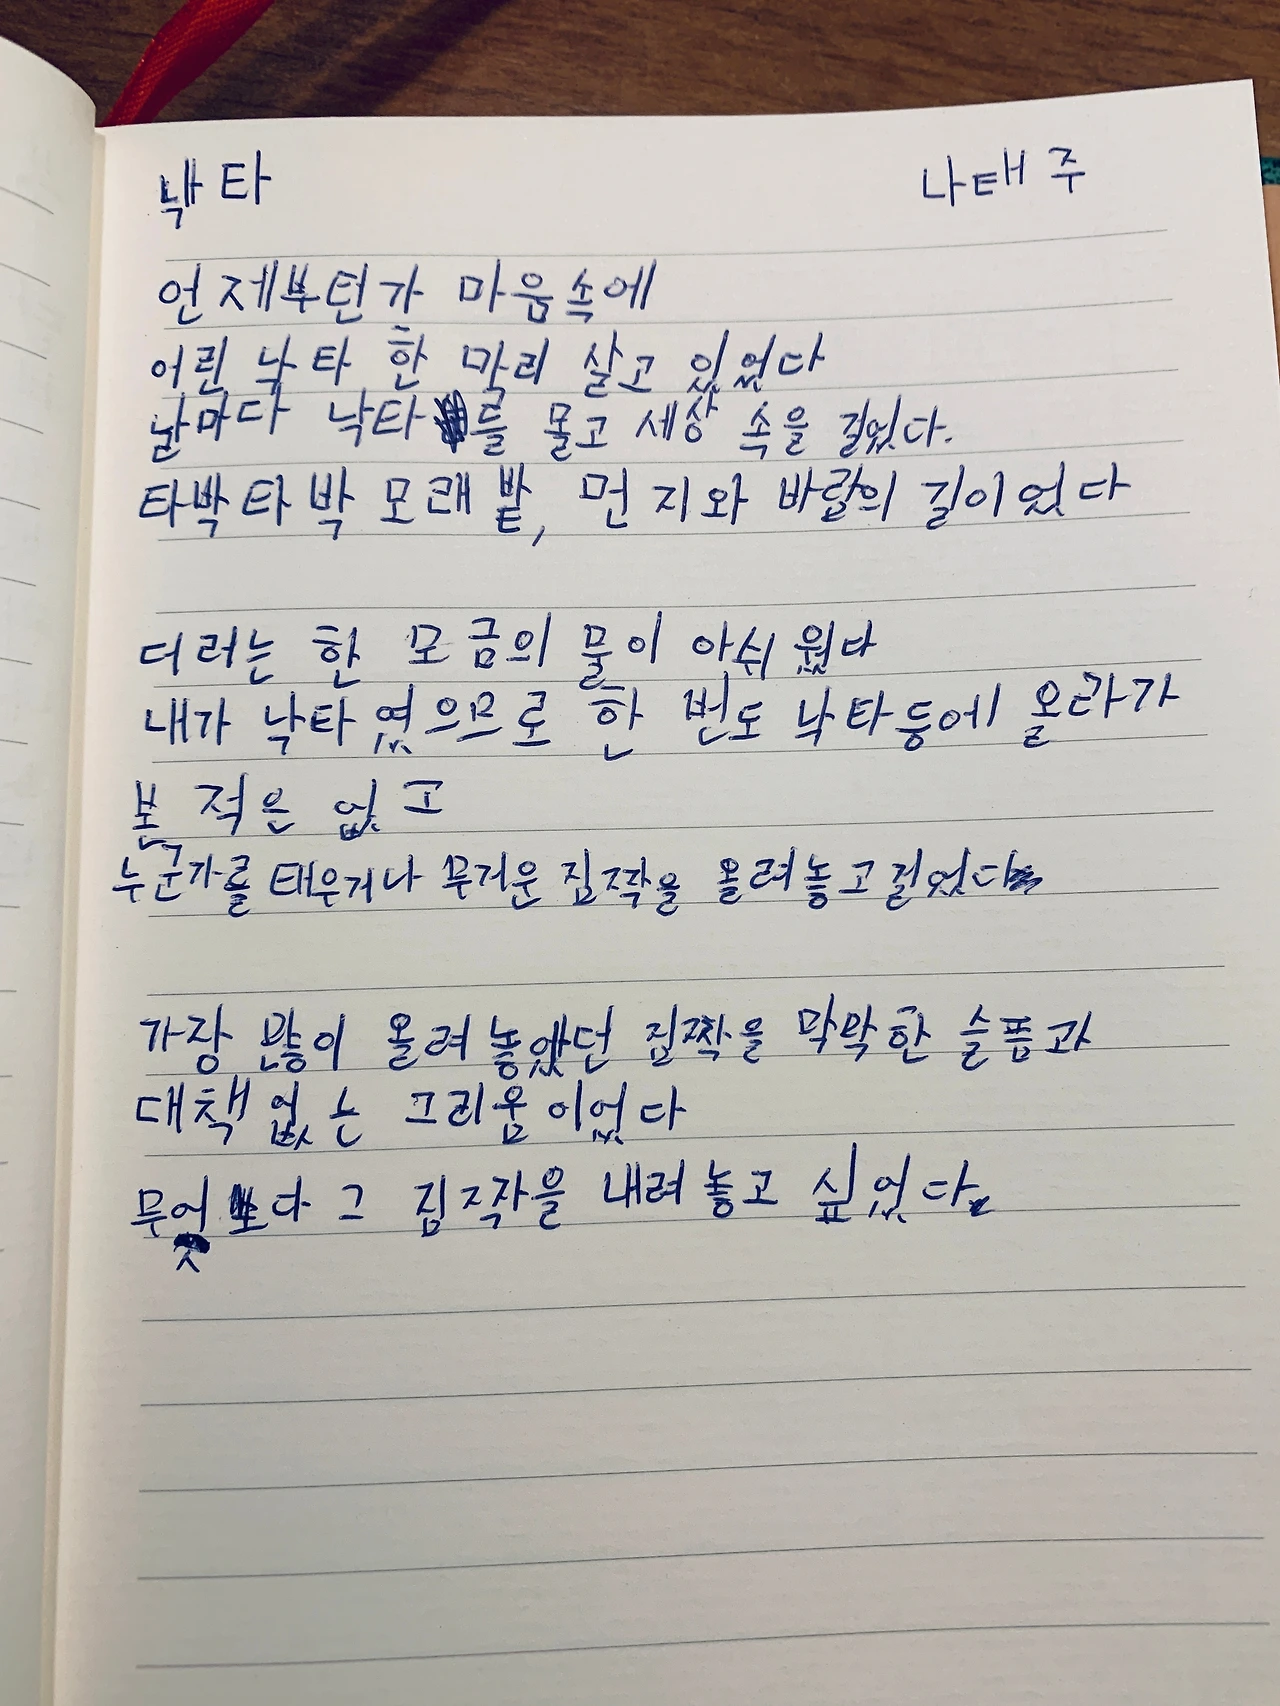 낙타 나태주
언제부턴가 마음속에
어린 낙타 한 마리 살고 있었다
날마다 낙타를 몰고 세상 속을 걸었다.
타박타박 모래밭, 먼지와 바람의 길이었다
더러는 한 모금의 물이 아쉬웠다
내가 낙타였으므로 한 번도 낙타등에 올라가
본 적은 없고
누군가를 태우거나 무거운 짐짝을 올려놓고 걸었다
가장 많이 올려놓았던 짐짝을 막막한 슬픔과
대책 없는 그리움이었다
무엇보다 그 짐짝을 내려놓고 싶었다